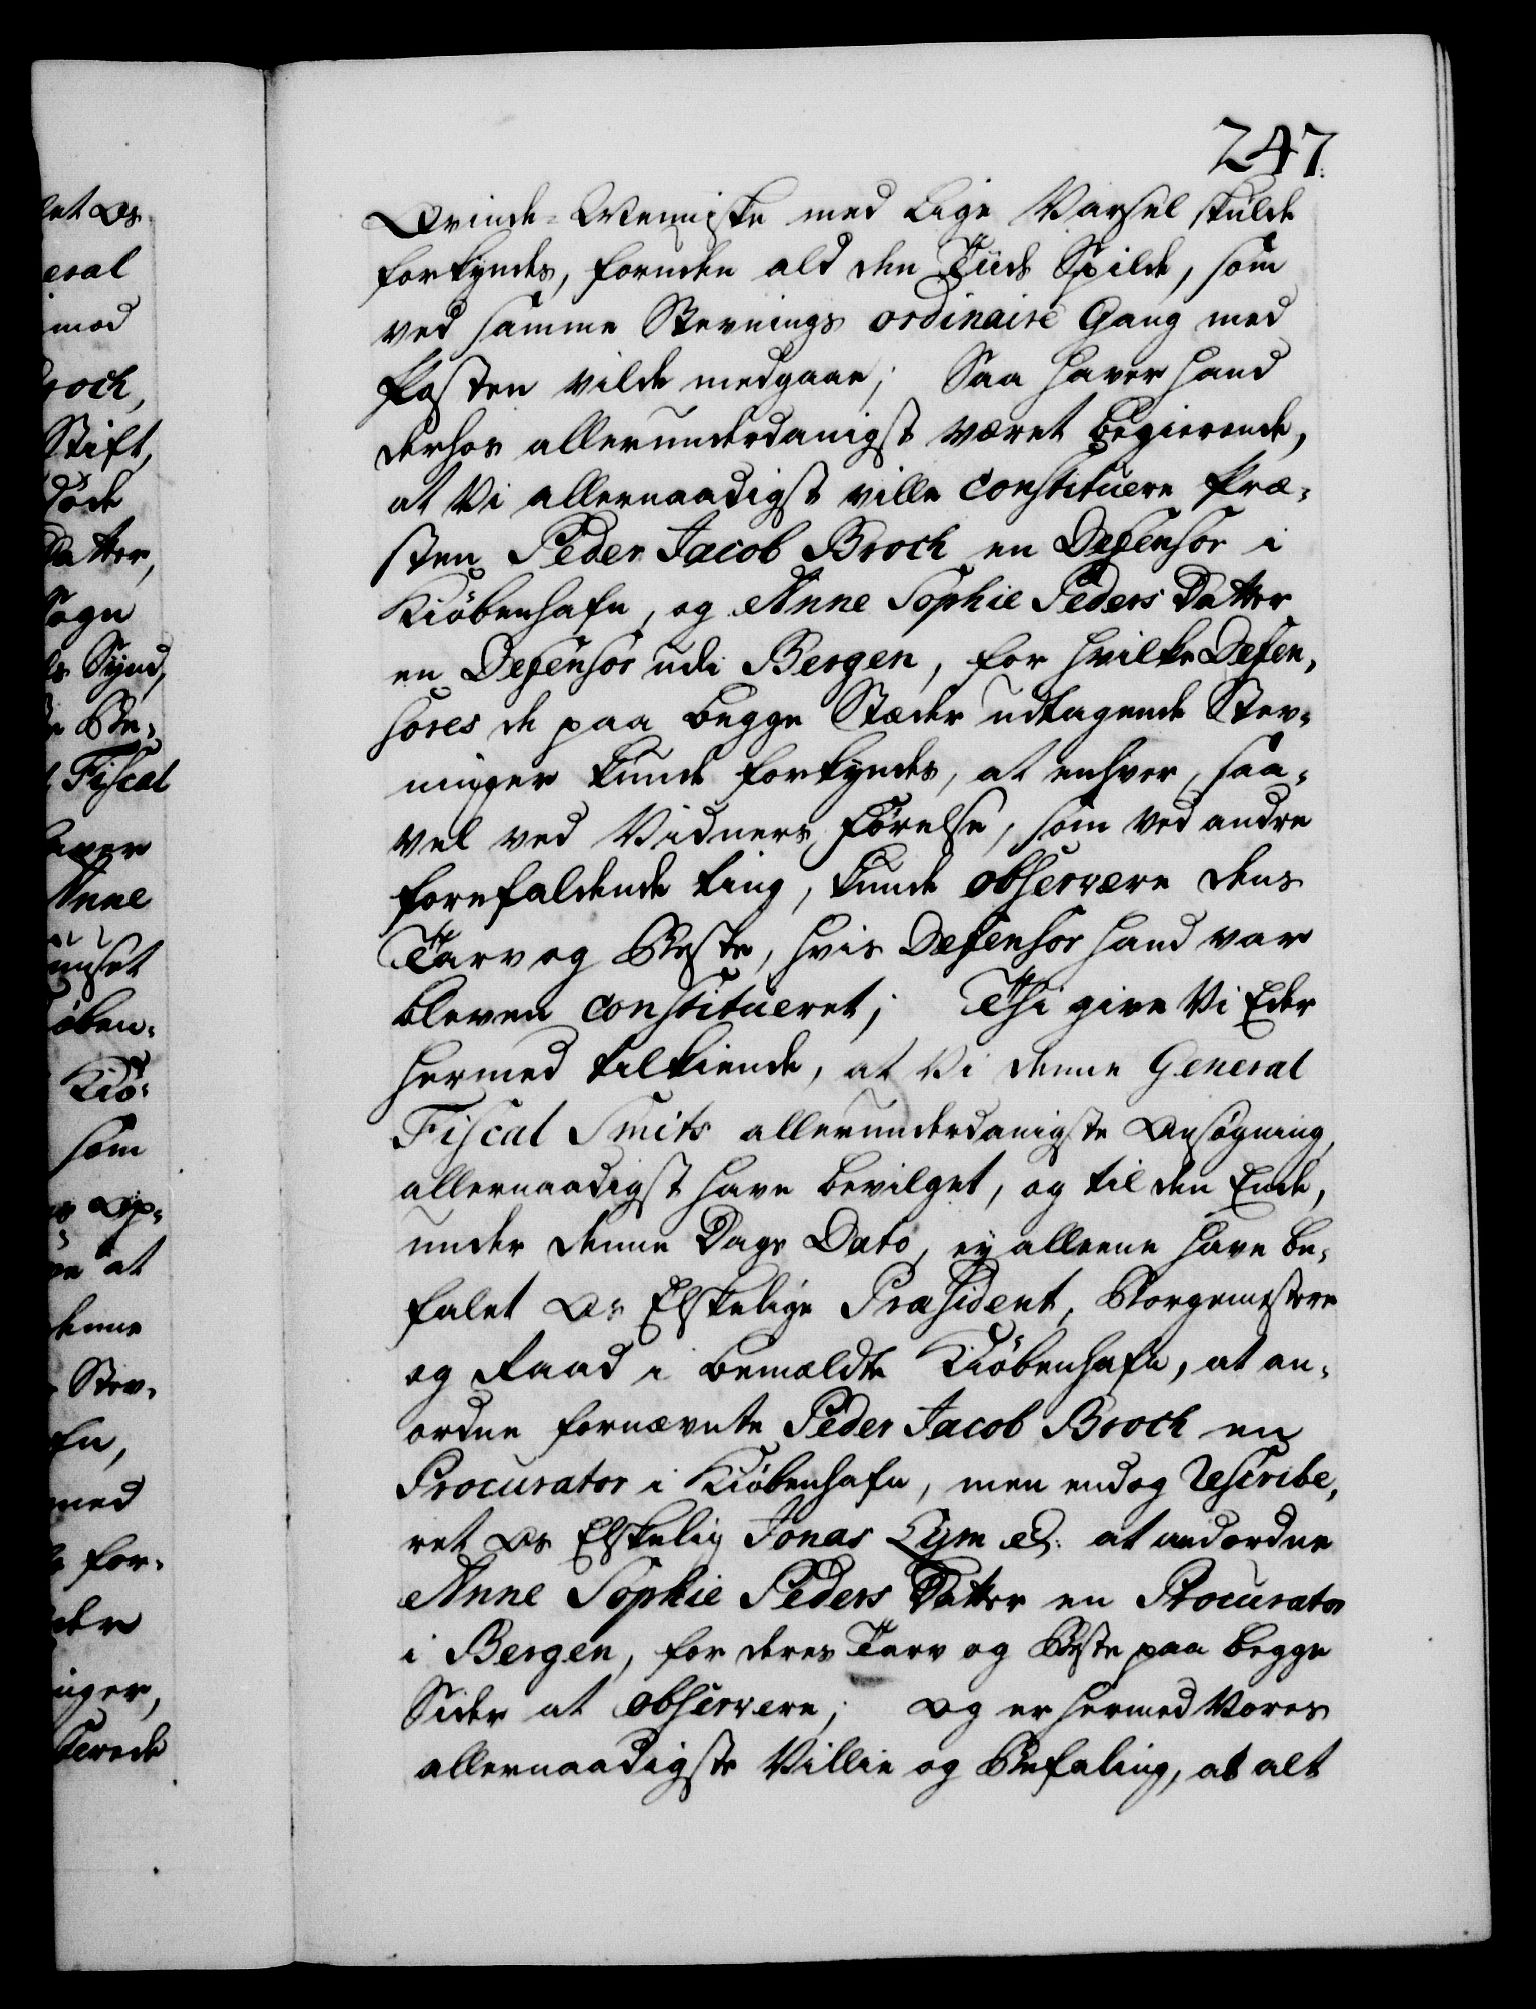 247.
Qvinde-Menniske med lige Varsel skulde
forkyndes, foruden ald den Tiids Spilde, som
ved samme Stevnings ordinaire Gang med
Posten vilde medgaae; Saa haver hand
derhos allerunderdanigst været begierende,
at Vi allernaadigst ville constituere Præ-
sten Peder Jacob Broch en Defensor i
Kiøbenhafn, og Anne Sophie Peders Datter
en Defensor udi Bergen, for hvilke Defen-
sores de paa begge Stæder udtagende Stev-
ninger kunde forkyndes, at enhver, saa-
vel ved Vidners Førelse, som ved andre
forefaldende ting, kunde observere dens
Tarv og Beste, hvis Defensor hand var
bleven constitueret; Thi give Vi Eder
hermed tilkiende, at Vi denne General
Fiscal Smits allerunderdanigste Ansøgning,
allernaadigst have bevilget, og til den Ende,
under denne Dags Dato, ey alleene have be-
falet Os Elskelige Præsident, Borgemestere
og Raad i bemældte Kiøbenhafn, at an-
ordne fornævnte Peder Jacob Broch en
Procurator i Kiøbenhafn, men endog rescribe-
ret Os Elskelig Jonas Lym at andordne
Anne Sophie Peders Datter en Procurator
i Bergen, for deres Tarv og Beste paa begge
Sider at observere; Og er hermed Vores
allernaadigste Villie og Befaling, at alt
let Os
eral
mod
roch,
Stift,
døde
Datter,
Sogn
Be-
Fiscal
haver
Anne
øben-
Kiø-
som
at
denne
Stev-
fn,
med
for-
der
inger,